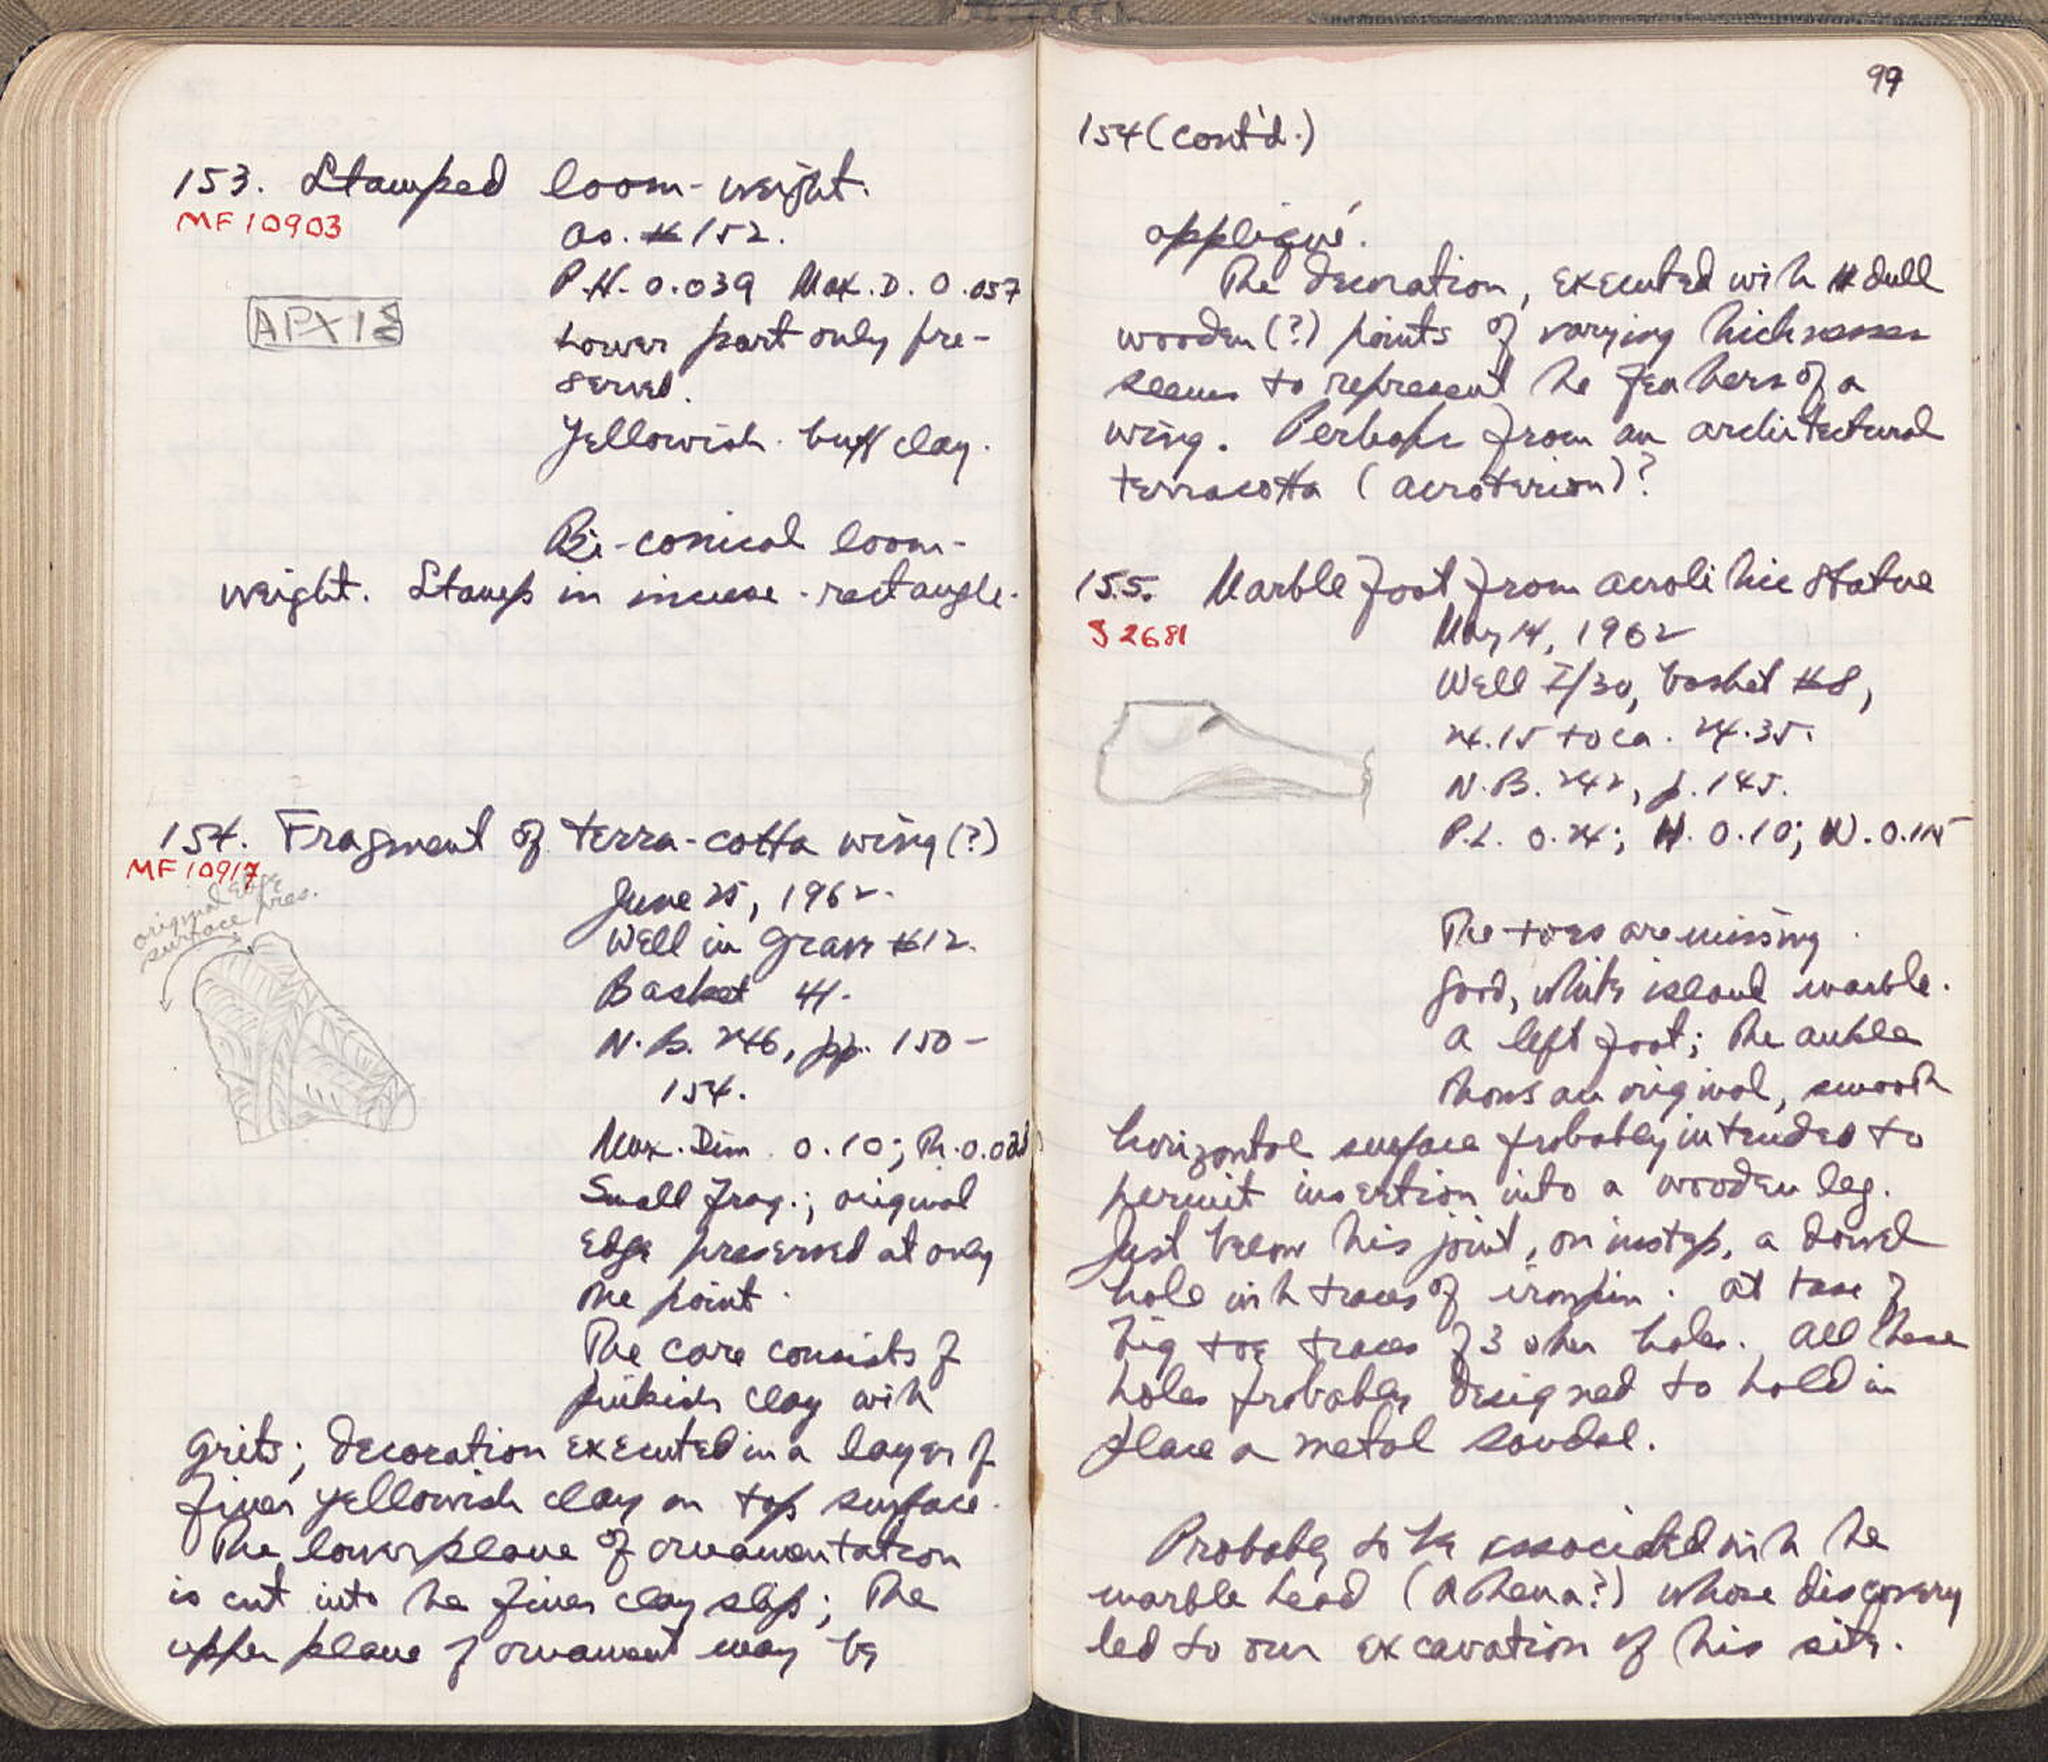 153. Stamped loom-weight.
MF 10903
as. # 152.
P.H. 0.039 Max. D. 0.057
ΑΡΧΙΣ
Lower part only pre-
served.
Yellowish buff clay.
Bi-conical loom-
weight. Stamp in incuse rectangle.
154. Fragment of terra-cotta wing (?)
MF 10917
original edge
surface pres.
June 25, 1962.
Well in Grave #12.
Basket 41.
N.B. 246, pp. 150-
154.
Max. Dim. 0.10; Th. 0.028
Small frag.; original
edge preserved at only
one point.
The core consists of
pinkish clay with
grits; decoration executed in a layer of
finer yellowish clay on top surface.
The lower plane of ornamentation
is cut into the finer clay slip; the
upper plane of ornament may be
99
154 (cont'd.)
appliqué.
The decoration, executed with dull
wooden (?) points of varying thicknesses
seems to represent the feathers of a
wing. Perhaps from an architectural
terracotta (acroterion)?
155. Marble foot from acrolithic statue
S 2681
May 14, 1962
Well I/30, basket #8,
24.15 to ca. 24.35.
N.B. 242, p. 145.
P.L. 0.24; H. 0.10; W. 0.115
The toes are missing.
Good, white island marble.
A left foot; the ankle
shows an original, smooth
horizontal surface probably intended to
permit insertion into a wooden leg.
Just below this joint, on instep, a dowel
hole with traces of iron pin; at base of
big toe traces of 3 other holes. All these
holes probably designed to hold in
place a metal sandal.
Probably to be associated with the
marble head (Athena?) whose discovery
led to our excavation of this site.